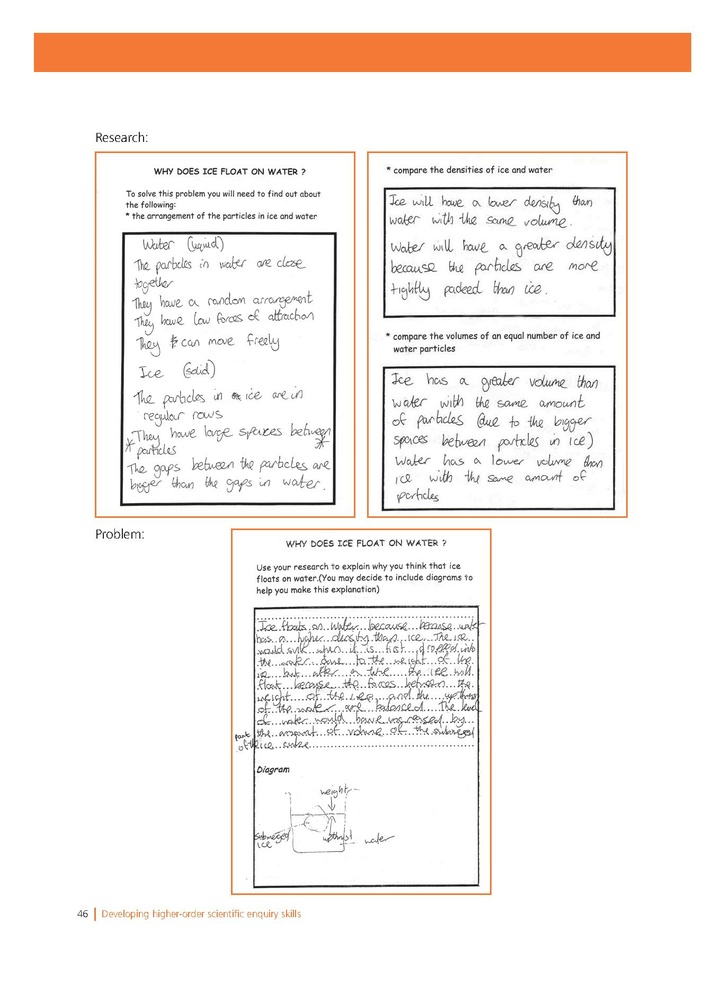 Research:
WHY DOES ICE FLOAT ON WATER ?
To solve this problem you will need to find out about
the following:
* the arrangement of the particles in ice and water
Water (liquid)
The particles in water are close
together
They have a random arrangement
They have low forces of attraction
They can move freely
Ice (solid)
The particles in ice are in
regular rows
* They have large spaces between *
particles
The gaps between the particles are
bigger than the gaps in water.
* compare the densities of ice and water
Ice will have a lower density than
water with the same volume.
Water will have a greater density
because the particles are more
tightly packed than ice.
* compare the volumes of an equal number of ice and
water particles
Ice has a greater volume than
water with the same amount
of particles (due to the bigger
spaces between particles in ice)
Water has a lower volume than
ice with the same amount of
particles
Problem:
WHY DOES ICE FLOAT ON WATER ?
Use your research to explain why you think that ice
floats on water.(You may decide to include diagrams to
help you make this explanation)
Ice floats on water because because water
has a higher density than ice. The ice
would sink when it is first dropped into
the water due to the weight of the
ice but after a time the ice will
float because the forces between the
weight of the ice and the upthrust
of the water are balanced. The level
of water would have increased by
the amount of volume of the submerged
part of the ice cube
Diagram
weight
submerged
ice
upthrust
water
46 | Developing higher-order scientific enquiry skills